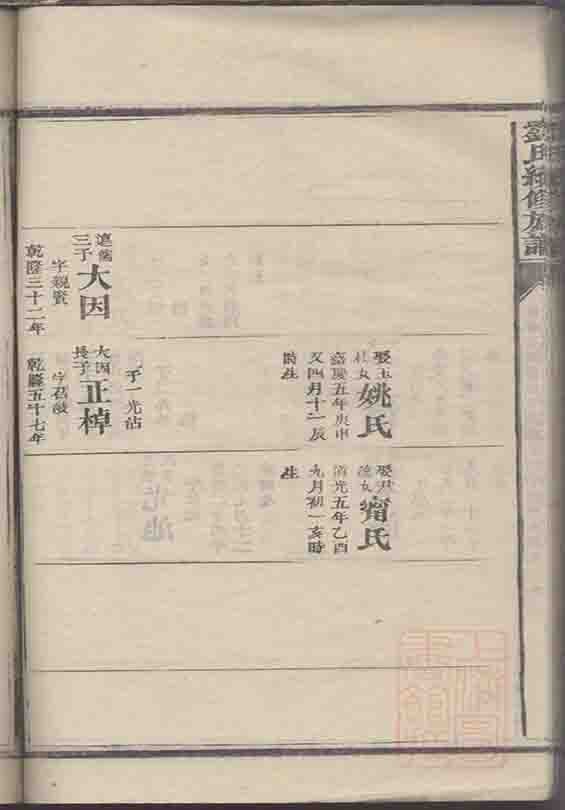 劉氏續修族譜
娶玉
桂女
姚氏
嘉慶五年庚申
又四月十一辰
時生
娶尹
女
甯氏
道光五年乙酉
九月初一亥時
生
三子
大因
字親賢
乾隆三十二年
子一光沾
大因
長子
正樟
字召
乾隆五十七年